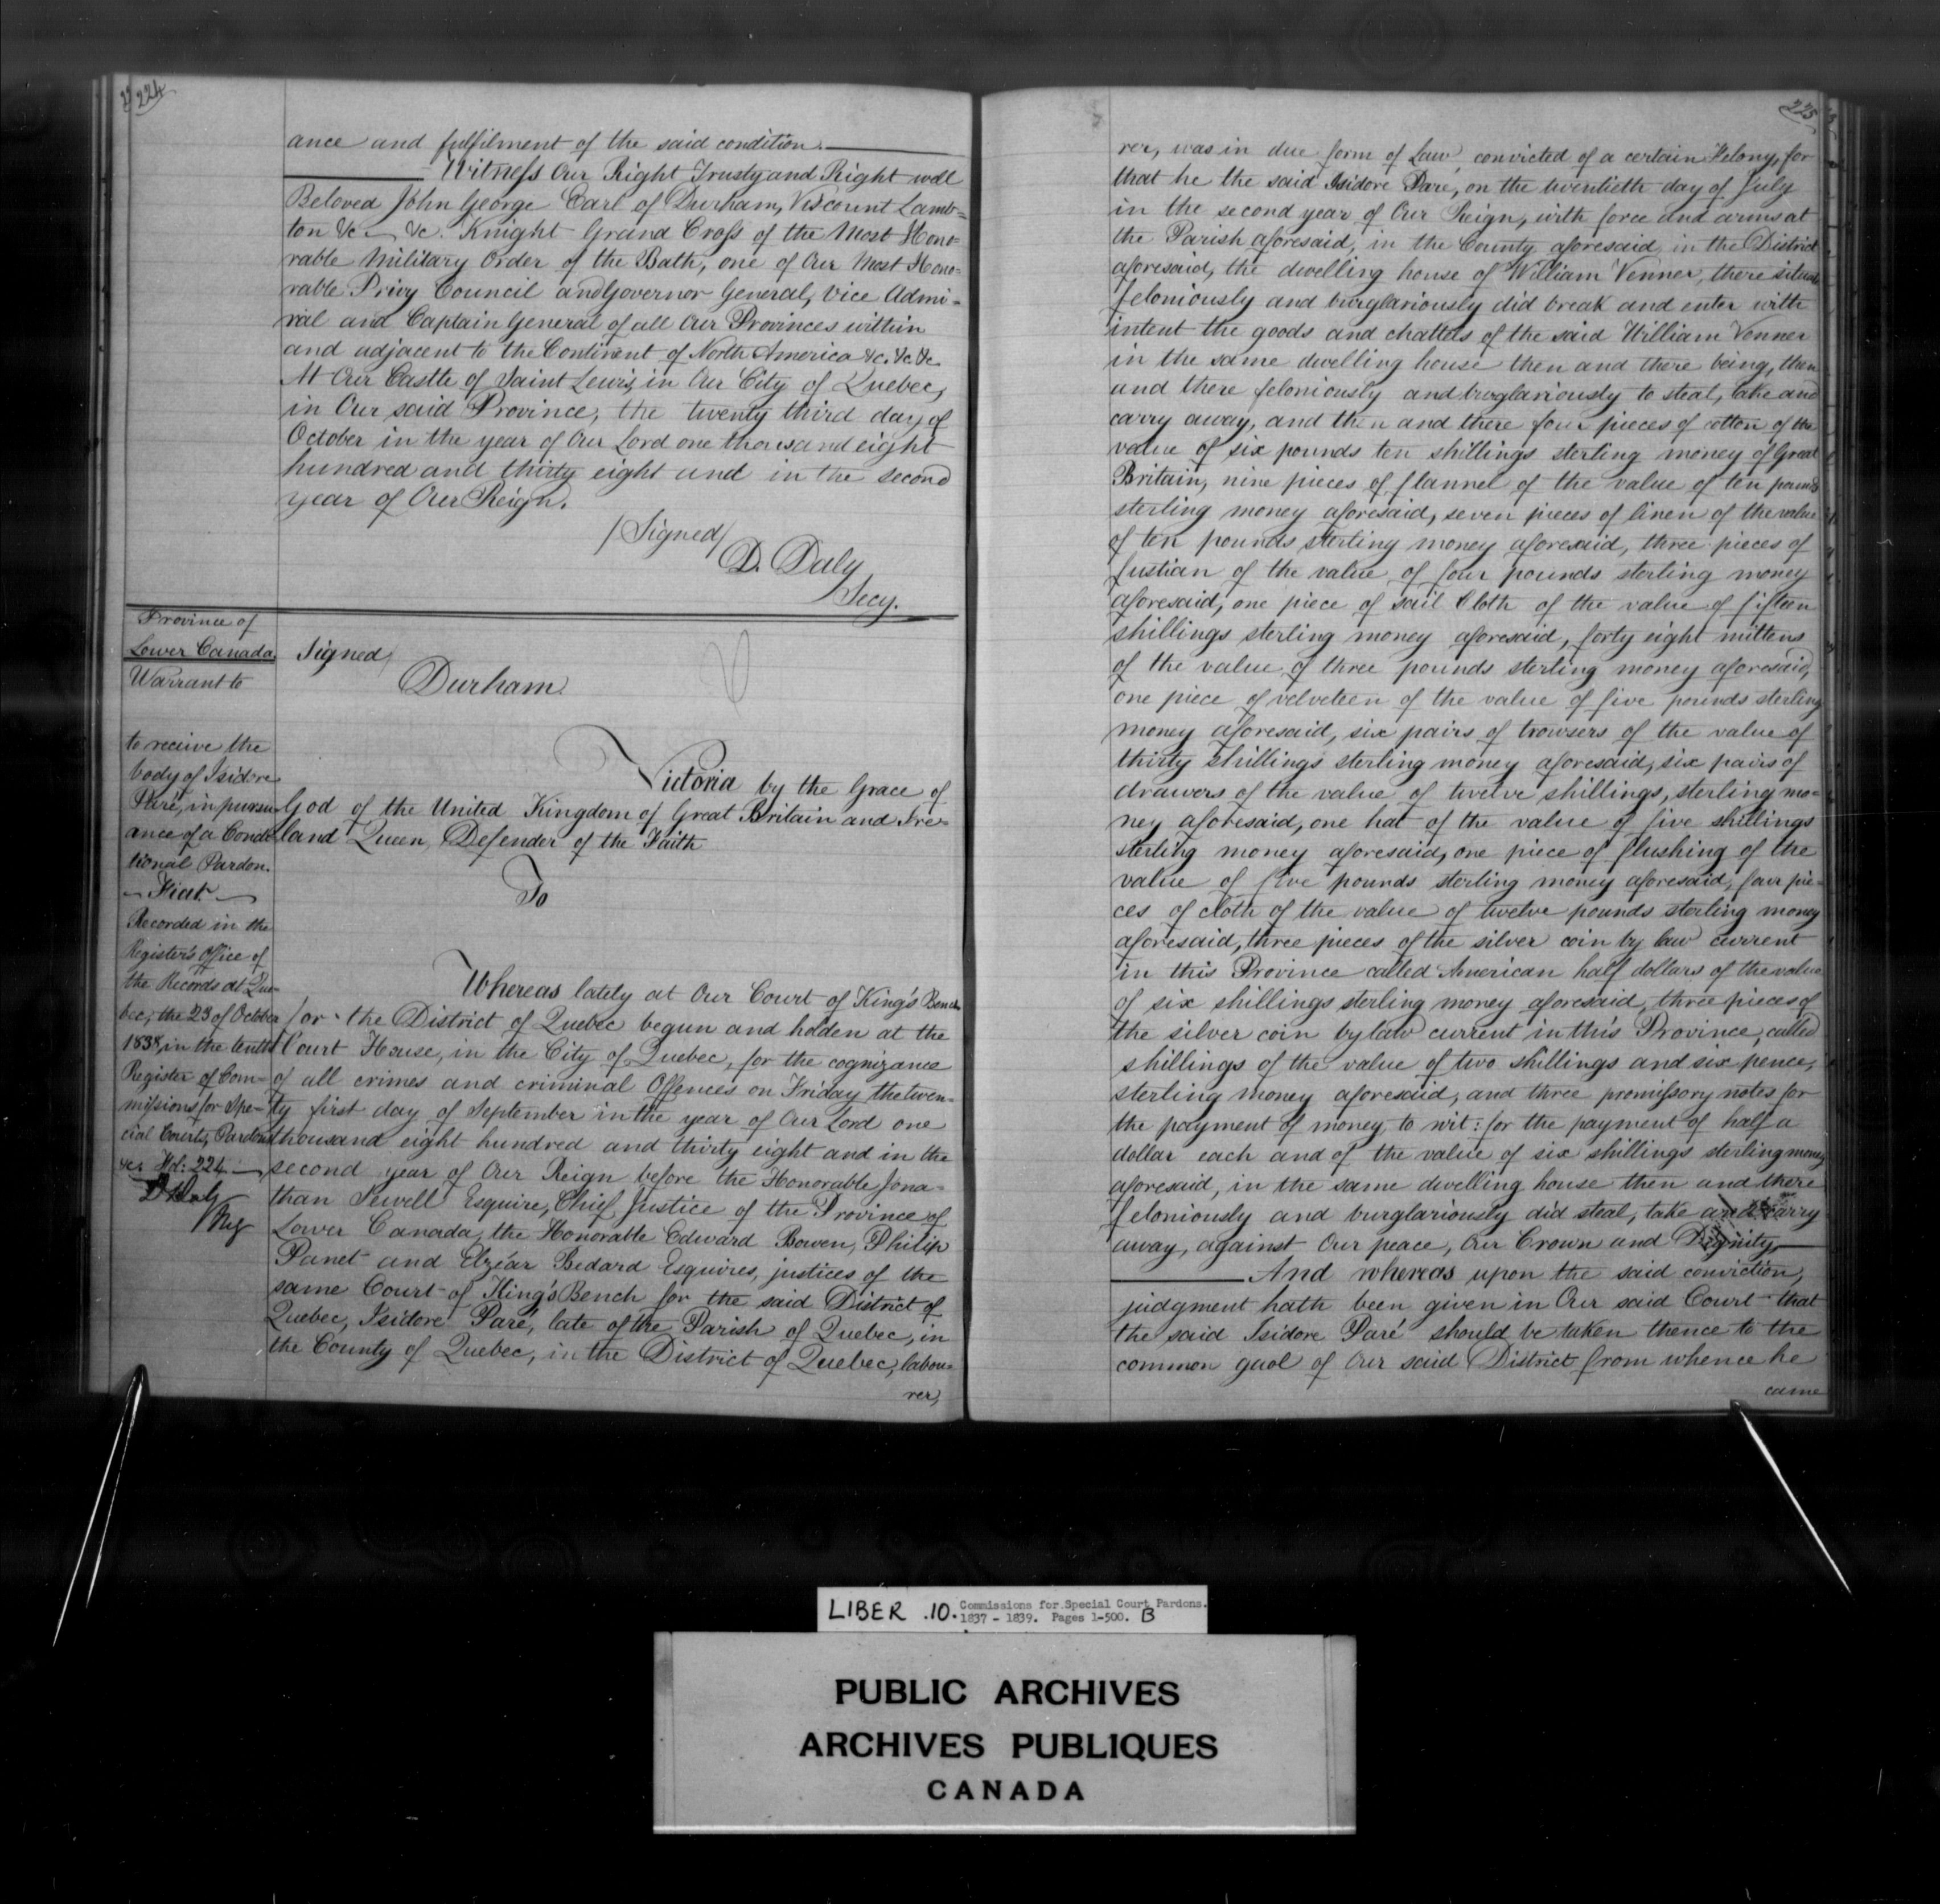 224
ance and fulfilment of the said condition.
Witness Our Right Trusty and Right well
Beloved John George Earl of Durham, Viscount Lamb=
ton &c &c. Knight Grand Cross of the Most Hono=
rable Military Order of the Bath, one of Our Most Hono=
rable Privy Council and Governor General, Vice Admi=
ral and Captain General of all Our Provinces within
and adjacent to the Continent of North America &c. &c. &c.
At Our Castle of Saint Lewis, in Our City of Quebec,
in Our said Province, the twenty third day of
October in the year of Our Lord one thousand eight
hundred and thirty eight and in the second
year of Our Reign.
/Signed/
D. Daly
Secy.
Province of
Lower Canada
Warrant to
to receive the
body of Isidore
Paré, in pursu=
ance of a Condi=
tional Pardon.
Fiat.
Recorded in the
Register's Office of
the Records at Que=
bec, the 23 of October
1838, in the tenth
Register of Com=
missions for Spe=
cial Courts, Pardons
&c. Fol: 224
D Daly
Reg
Signed/
Durham
Victoria by the Grace of
God of the United Kingdom of Great Britain and Ire=
land Queen, Defender of the Faith
To
Whereas lately at Our Court of King's Bench
for the District of Quebec begun and holden at the
Court House, in the City of Quebec, for the cognizance
of all crimes and criminal Offences on Friday the twen=
ty first day of September in the year of Our Lord one
thousand eight hundred and thirty eight and in the
second year of Our Reign before the Honorable Jona=
than Sewell Esquire, Chief Justice of the Province of
Lower Canada, the Honorable Edward Bowen, Philip
Panet and Elzéar Bedard Esquires, justices of the
same Court of King's Bench for the said District of
Quebec, Isidore Paré, late of the Parish of Quebec, in
the County of Quebec, in the District of Quebec, labou=
rer,
225
rer, was in due form of Law, convicted of a certain Felony, for
that he the said Isidore Paré, on the twentieth day of July
in the second year of Our Reign, with force and arms at
the Parish aforesaid, in the County aforesaid in the District
aforesaid, the dwelling house of William Venner, there situate
feloniously and burglariously did break and enter with
intent the goods and chattels of the said William Venner
in the same dwelling house then and there being, then
and there feloniously and burglariously to steal, take and
carry away, and then and there four pieces of cotton of the
value of six pounds ten shillings sterling money of Great
Britain, nine pieces of flannel of the value of ten pounds
sterling money aforesaid, seven pieces of linen of the value
of ten pounds sterling money aforesaid, three pieces of
fustian of the value of four pounds sterling money
aforesaid, one piece of sail Cloth of the value of fifteen
shillings sterling money aforesaid, forty eight mittens
of the value of three pounds sterling money aforesaid,
one piece of velveteen of the value of five pounds sterling
money aforesaid, six pairs of trowsers of the value of
thirty shillings sterling money aforesaid, six pairs of
drawers of the value of twelve shillings, sterling mo=
ney aforesaid, one hat of the value of five shillings
sterling money aforesaid, one piece of flushing of the
value of five pounds sterling money aforesaid, four pie=
ces of cloth of the value of twelve pounds sterling money
aforesaid, three pieces of the silver coin by law current
in this Province called American half dollars of the value
of six shillings sterling money aforesaid, three pieces of
the silver coin by law current in this Province, called
shillings of the value of two shillings and six pence,
sterling money aforesaid, and three promissory notes for
the payment of money, to wit: for the payment of half a
dollar each and of the value of six shillings sterling money
aforesaid, in the same dwelling house then and there
feloniously and burglariously did steal, take and carry
away, against Our peace, Our Crown and Dignity.
And whereas upon the said conviction,
judgment hath been given in Our said Court that
the said Isidore Paré should be taken thence to the
common gaol of Our said District from whence he
came
LIBER .10. Commissions for Special Court Pardons.
1837 - 1839. Pages 1-500. B
PUBLIC ARCHIVES
ARCHIVES PUBLIQUES
CANADA